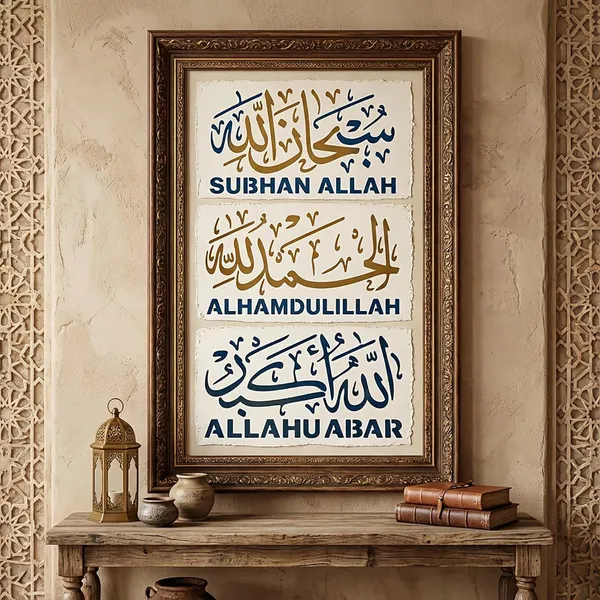 سبحان الله
SUBHAN ALLAH
الحمد لله
ALHAMDULILLAH
الله أكبر
ALLAHU ABAR